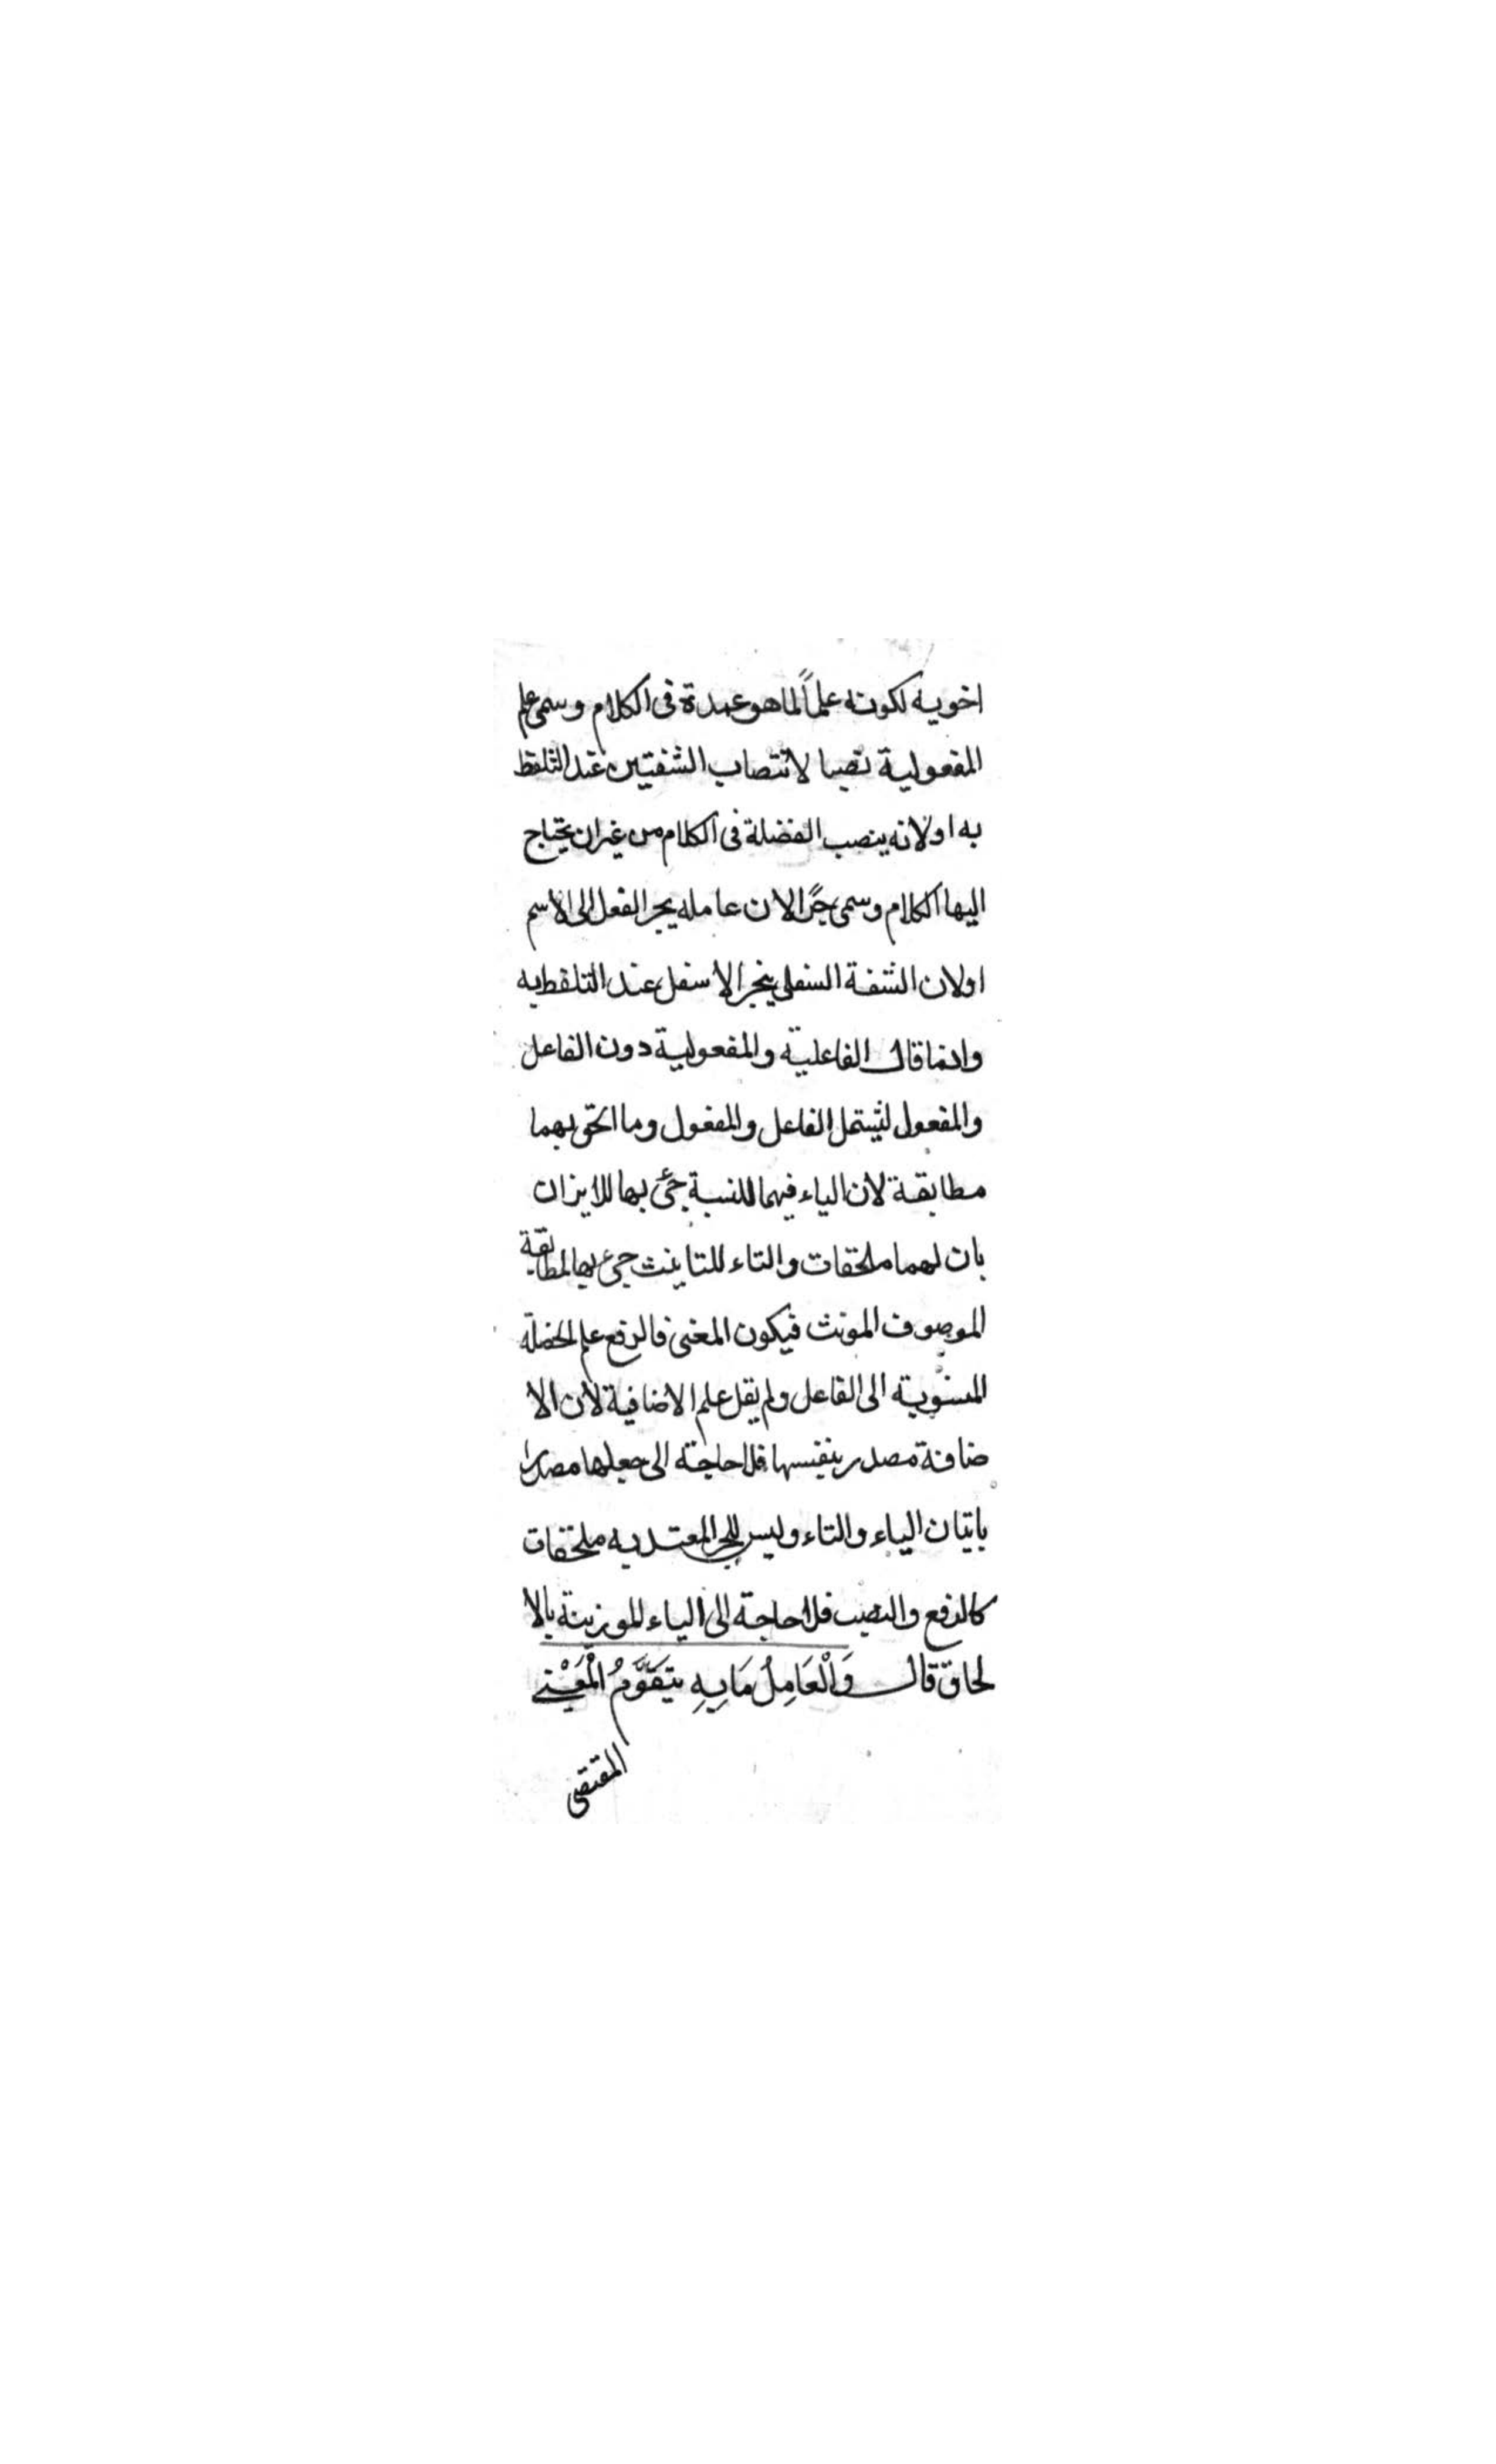 اخويه لكونه علماً لما هو عمدة فى الكلام وسمى علم
المفعولية نصبا لانتصاب الشفتين عند التلفظ
به او لانه ينصب الفضلة فى الكلام من غير ان يحتاج
اليها الكلام وسمى جرًا لان عامله يجر الفعل الى الاسم
اولان الشفة السفلى ينجر الاسفل عند التلفظ به
وانما قال الفاعلية والمفعولية دون الفاعل
والمفعول ليشتمل الفاعل والمفعول وما الحق بهما
مطابقة لان الياء فيهما للنسبة جئ بها للايزان
بان لهما ملحقات والتاء للتانيث جئ بها لمطابقة
الموصوف المونث فيكون المعنى فالرفع علم الخصلة
المنسوبة الى الفاعل ولم يقل علم الاضافية لان الا
ضافة مصدر بنفسها فلا حاجة الى جعلها مصدرا
باتيان الياء والتاء وليس للجر المعتد به ملحقات
كالرفع والنصب فلا حاجة الى الياء للموزينة بالا
لحاق قال وَالْعَامِلُ مَا بِهِ يتَقَوَّمُ الْمَعْنٰى
المقتضى